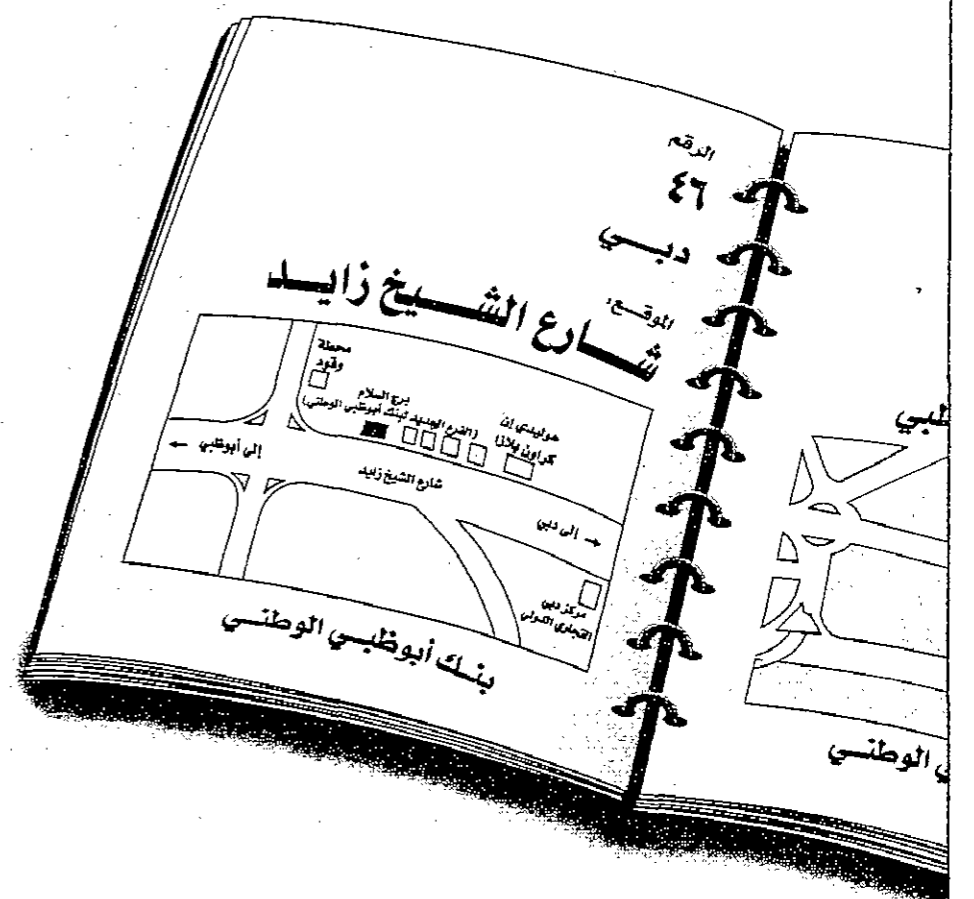 الرقم
٤٦
دبـــي
الموقـــع:
شـــارع الشـــيخ زايـــد
محطة
وقود
برج السلام
(الفرع الجديد لبنك أبوظبي الوطني)
هوليدي إن
كراون بلازا
إلى أبوظبي ←
شارع الشيخ زايد
→ إلى دبي
مركز دبي
التجاري الدولي
بنـــك أبوظبـــي الوطنـــي
ظبي
ي الوطنـــي